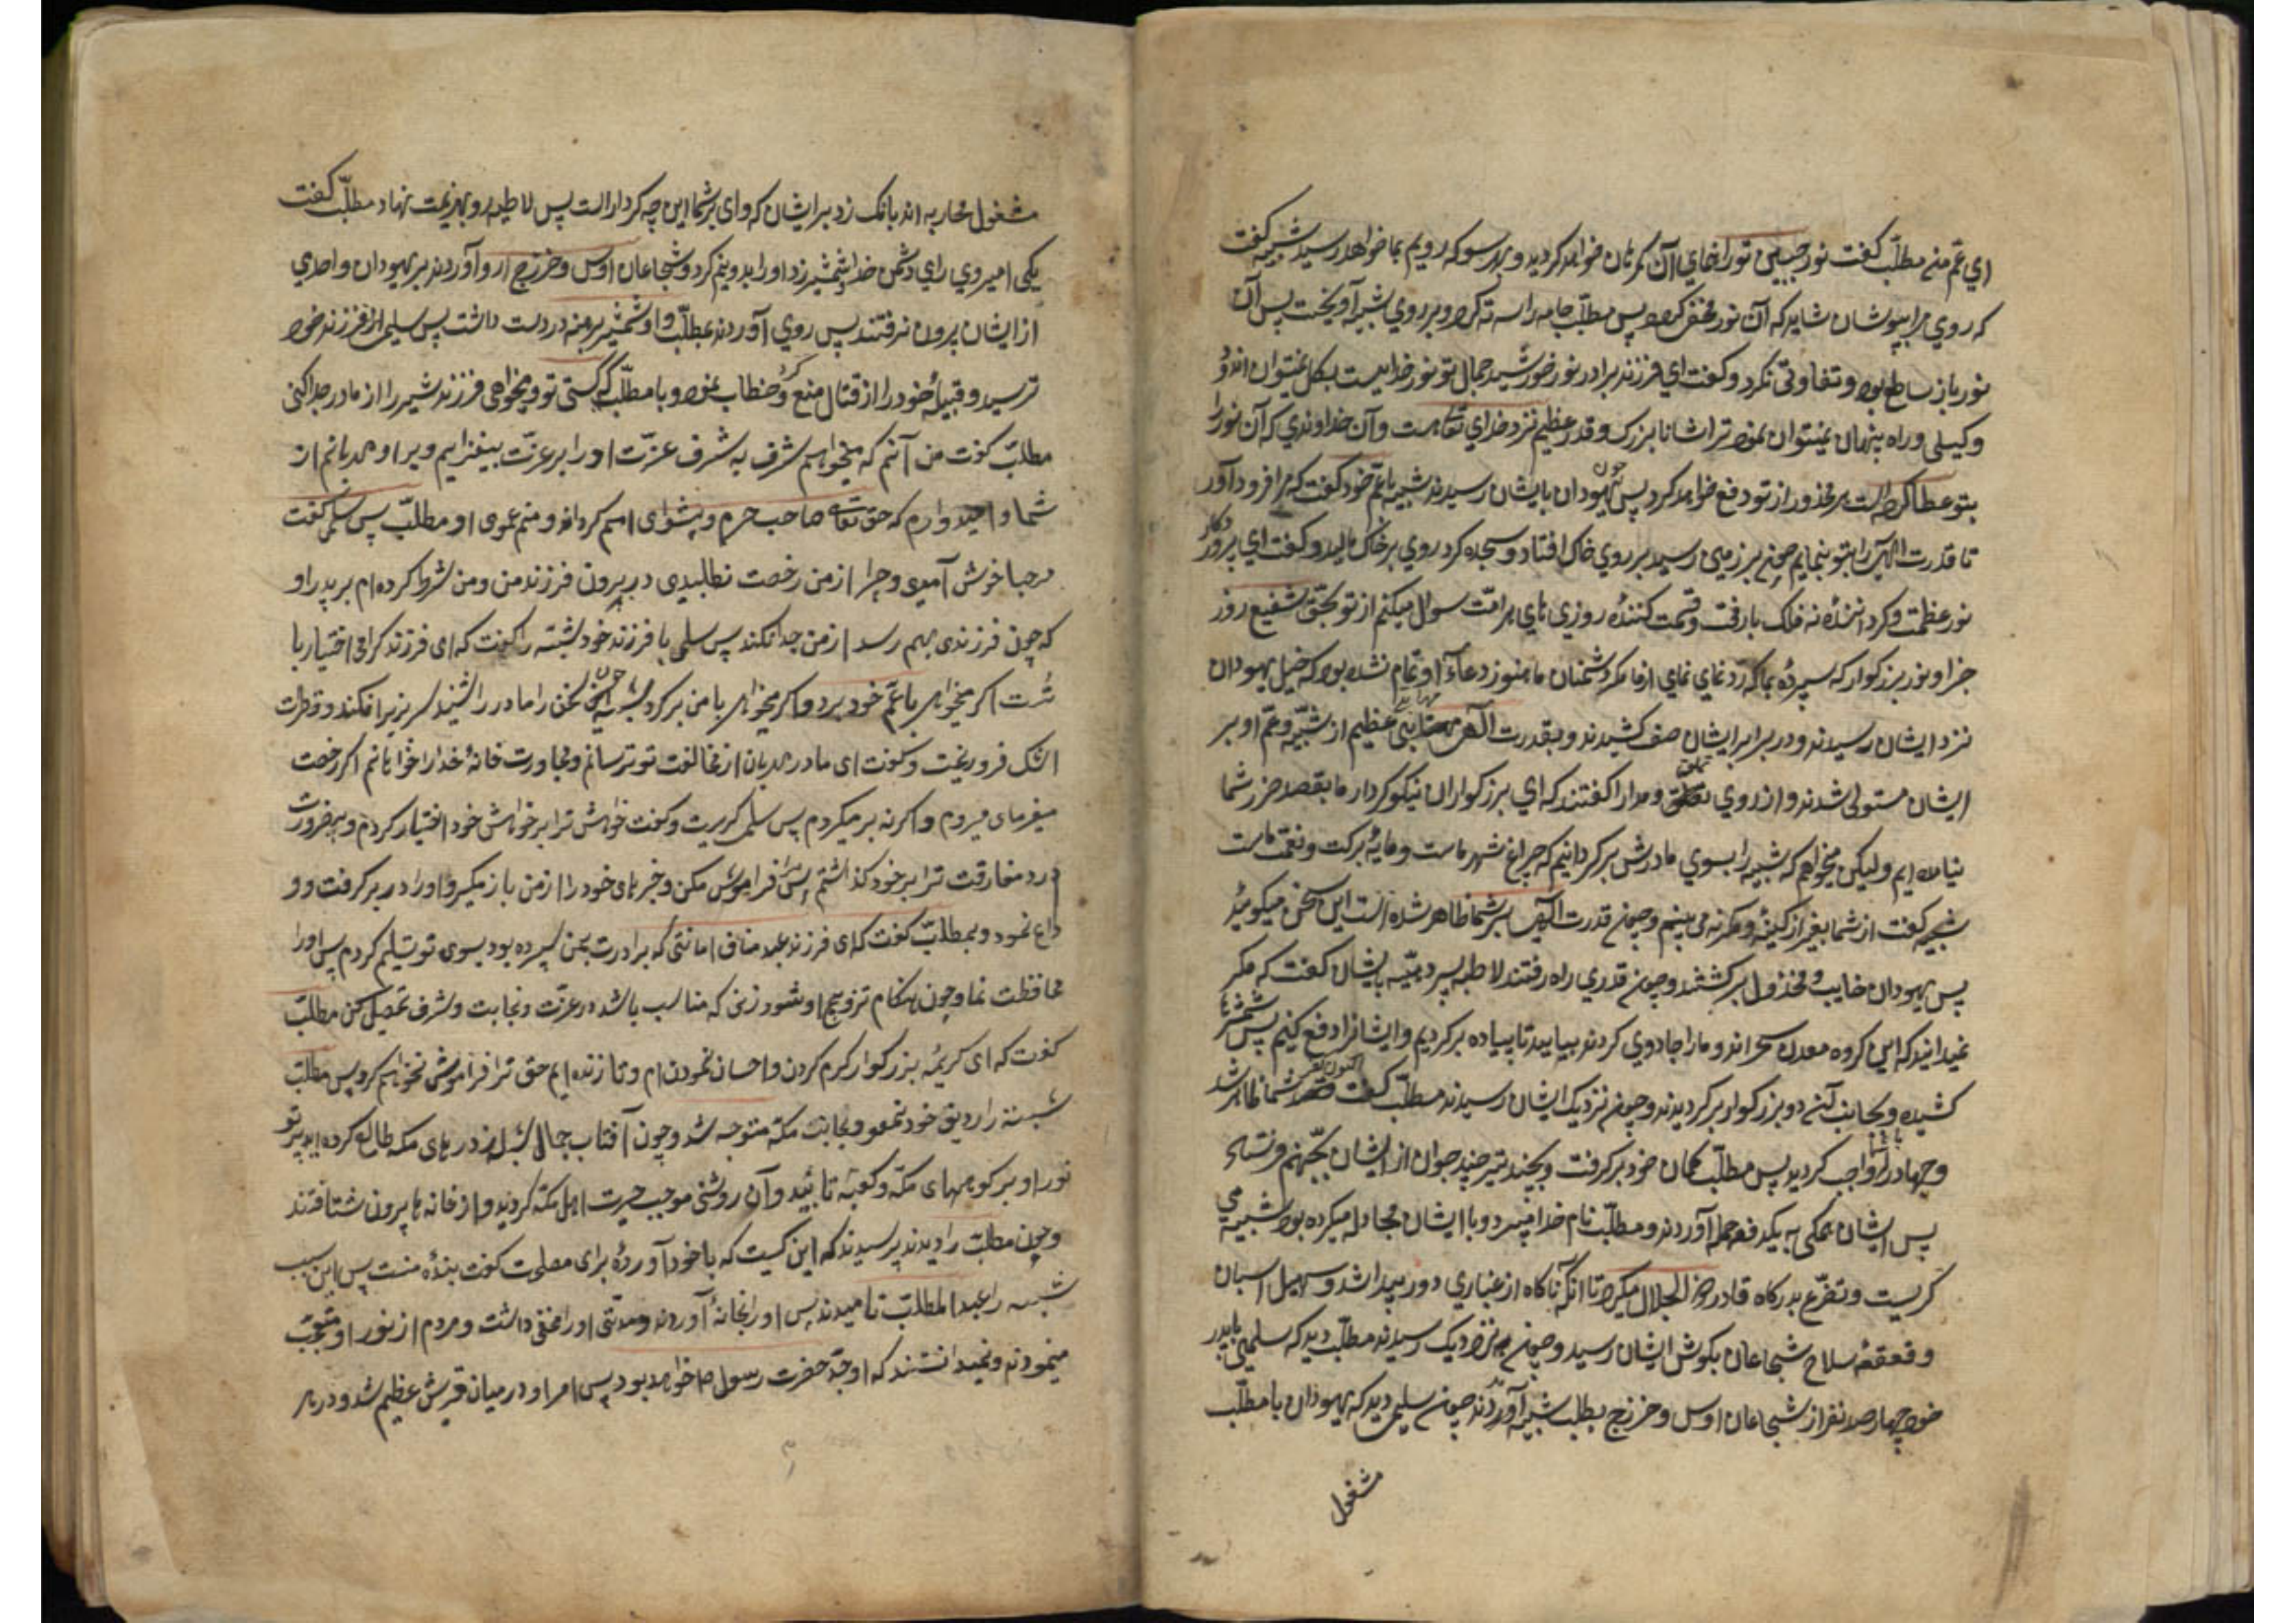 اي عم من مطلب كفت نور جبين تو راهنماي آن كمرهان خواهد كرديد و بهر سو كه رويم بما خواهد رسيد شيبه كفت
كه روي مرا بپوشان شايد كه آن نور مخفي كردد پس مطلب جامه را سه ته كرد و بر روي شيبه آويخت پس آن
نور باز ساطع بود و تفاوتي نكرد و كفت اي فرزند برادر نور خورشيد جمال تو نور خداييست بكل نميتوان اندود
و كيسلي و راه پنهان نميتوان نمود ترا شانا بزرك و قدر عظيم نزد خداي تعالي هست و آن خداوندي كه آن نور را
بتو عطا كرده است هر محذور از تو دفع خواهد كرد پس چون يهودان بايشان رسيدند شيبه با عم خود كفت كه مرا فرود آور
تا قدرت الهي را بتو بنمايم چون بر زمين رسيد بر روي خاك افتاد و سجده كرد روي بر خاك ماليد و كفت اي پروردكار
نور عظمت و كرداننده نه فلك با رفعت و قسمت كننده روزي هاي هر امت سوال ميكنم از تو بحق شفيع روز
جزا و نور بزركوار كه سپرده بما كه رد نماي نماي از ما مكر دشمنان ما هنوز دعاء او تمام نشده بود كه خيل يهودان
نزد ايشان رسيدند و در برابر ايشان صف كشيدند و بقدرت الهي مهابتي عظيم از شيبه و عم او بر
ايشان مستولي شدند و از روي تملق و مدارا كفتند كه اي بزركواران نيكو كردار ما بقصد ضرر شما
نيامده ايم وليكن ميخواهم كه شيبه را بسوي مادرش بركردانيم كه چراغ شهر ماست و مايه بركت و نعمت ماست
شيبه كفت از شما بغير از كينه و مكر نمي بينم و چون قدرت الهي بر شما ظاهر شده است اين سخن ميكوئيد
پس يهودان خايب و مخذول بركشتند و چون قدري راه رفتند لاطيه پسر دهيه بايشان كفت كه مكر
نميدانيد كه اين كروه معدن سحراند و ما را جادوي كردند بياييد تا پياده بركرديم و ايشانرا دفع كنيم پس شمشيرها
كشيده و بجانب آن دو بزركوار بركرديدند و چون نزديك ايشان رسيدند مطلب كفت اكنون قصد شما ظاهر شد
و جهاد شما واجب كرديد پس مطلب كمان خود بركرفت و بچند تير چند جوان از ايشان بجهنم فرستاد
پس ايشان همكي به يكدفعه حمله آوردند و مطلب نام خدا ميبرد و با ايشان مجادله ميكرده بود شيبه مي
كريست و تضرع بدركاه قادر ذو الجلال ميكرد تا انكه ناكاه از غباري دور پيدا شد و صهيل اسبان
و قعقعه سلاح شجاعان بكوش ايشان رسيد و چون نزديك رسيدند مطلب ديد كه سلمي با پدر
خود چهار صد نفر از شجاعان اوس و خزرج بطلب شيبه آوردند چون سلمي ديد كه يهودان با مطلب
مشغول
مشغول محاربه اند بانك زد بر ايشان كه واي بر شما اين چه كردار است پس لاطيه رو بهزيمت نهاد مطلب كفت
بكجا ميروي اي دشمن خدا شمشير زد او را بدو نيم كرد و شجاعان اوس و خزرج رو آوردند بر يهودان و احدي
از ايشان بيرون نرفتند پس روي آوردند بمطلب و او شمشير برهنه در دست داشت پس سلمي از فرزند خود
ترسيد و قبيله خود را از قتال منع كرد و خطاب نمود و با مطلب كه كيستي تو و ميخواهي فرزند شير را از مادر جدا كني
مطلب كفت من آنم كه ميخواهم شرف به شرف عزت او را بر عزت بيفزايم و بر او مهربانم از
شما و اميدوارم كه حق تعالي صاحب حرم و پيشواي امم كرداند و منم عموي او مطلب پس سلمي كفت
مرحبا خوش آمدي و چرا از من رخصت نطلبيدي در بيرون فرزند من و من شرط كرده ام بر پدر او
كه چون فرزندي بهم رسد از من جدا نكند پس سلمي با فرزند خود شيبه را كفت كه اي فرزند كرامي اختيار با
تست اكر ميخواهي با عم خود برو و اكر ميخواهي با من بركرد شيبه چون سخن را مادر را شنيد سر بزير افكند و قطرات
اشك فرو ريخت و كفت اي مادر مهربان از مخالفت تو ترسانم و مجاورت خانه خدا را خواهانم اكر رخصت
ميفرماي ميروم و اكر نه برميكردم پس سلمي كريست و كفت خواهش ترا بر خواهش خود اختيار كردم و بضرورت
درد مفارقت ترا بر خود كذاشتم پس مرا فراموش مكن و خبرهاي خود را از من باز مكير و او را در بر كرفت و و
داع نمود و بمطلب كفت كه اي فرزند عبد مناف امانتي كه برادرت بمن سپرده بود بسوي تو تسليم كردم پس او را
محافظت نما و چون هنكام تزويج او شود زني كه مناسب باشد در عزت و نجابت و شرف تحصيل كن مطلب
كفت كه اي كريمه بزركوار كرم كردن و احسان نمودن ام و تا زنده ايم حق ترا فراموش نخواهم كرد پس مطلب
شيبه را رديف خود نمود و بجانب مكه متوجه شد و چون آفتاب جمال شيبه از درهاي مكه طالع كرديد پرتو
نور او بر كوههاي مكه و كعبه تابيد و آن روشني موجب حيرت اهل مكه كرديد و از خانه ها بيرون شتافتند
و چون مطلب را ديدند پرسيدند كه اين كيست كه با خود آورده براي مصلحت كفت بنده منست پس باين سبب
شيبه را عبد المطلب ناميدند پس او را بخانه آوردند و مدتي او را مخفي داشت و مردم از نور او متعجب
مينمودند و نميدانستند كه او جد حضرت رسول ص خواهد بود پس امر او در ميان قريش عظيم شد و در هر